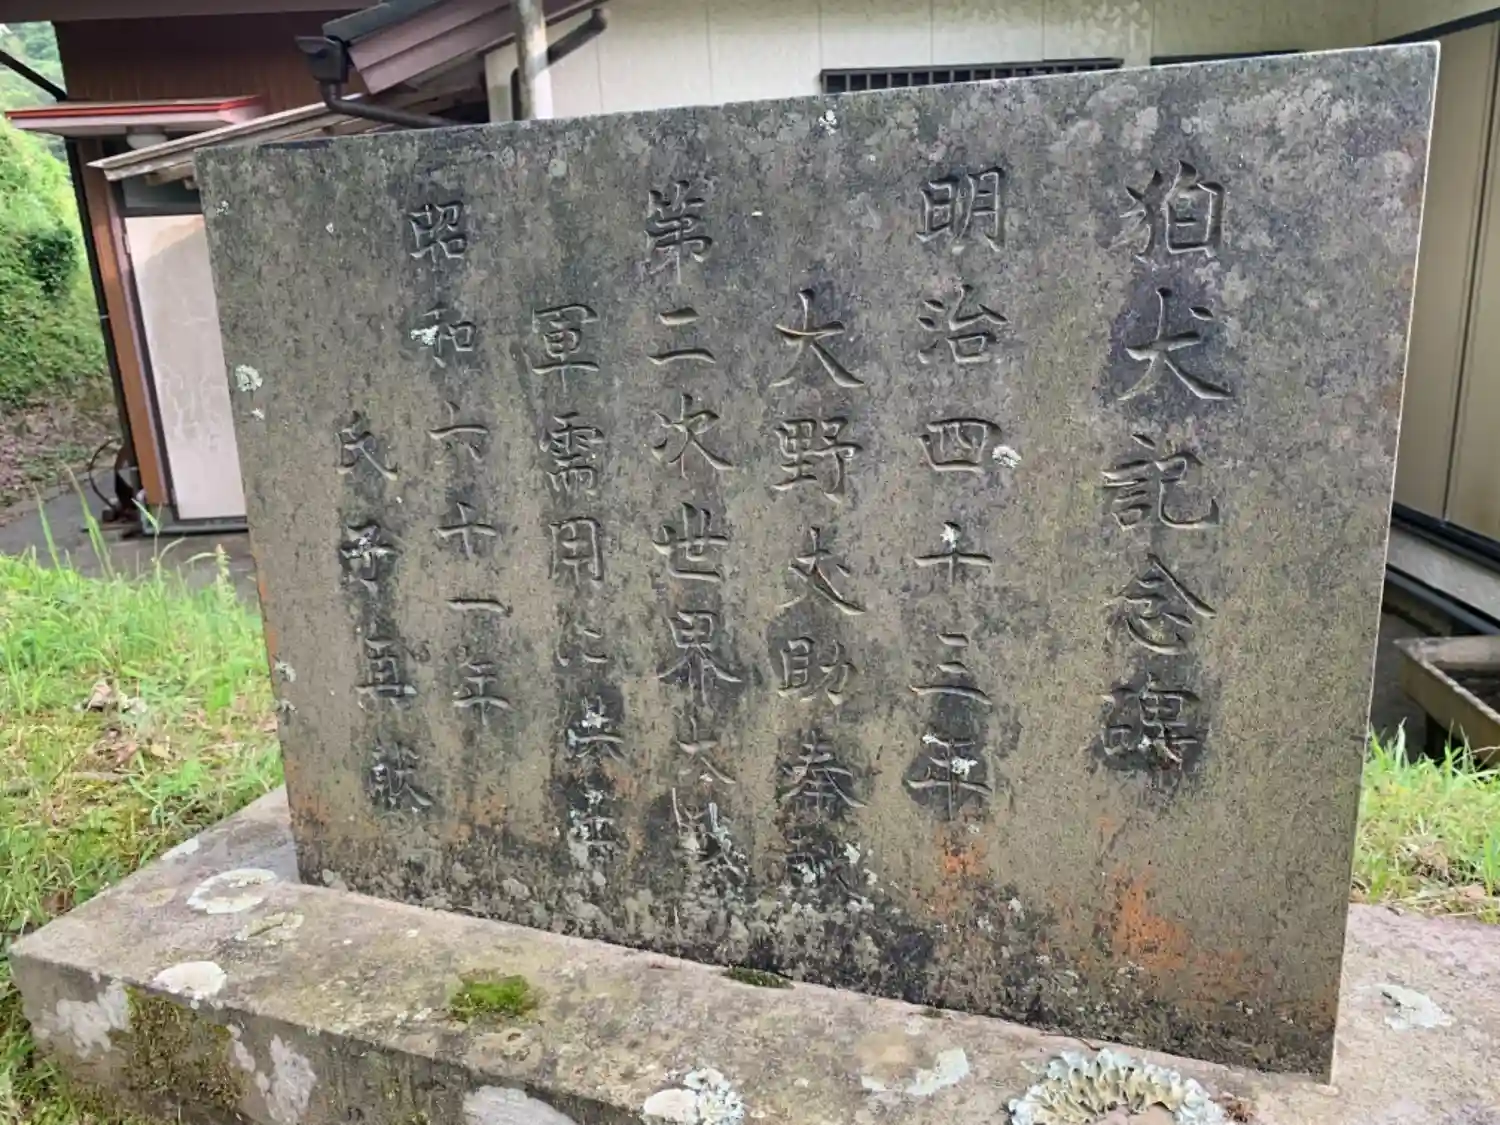 狛犬記念碑
明治四十三年
大野丈助奉献
第二次世界大戦
軍需用に供出
昭和六十一年
氏子再献